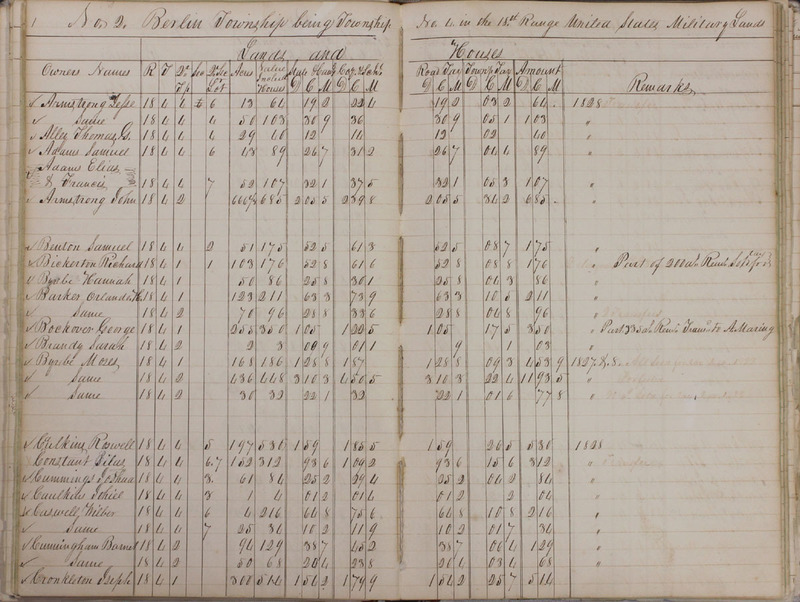 1 No. 2. Berlin Township being Township No. 4 in the 18th Range United States Military Lands
Lands and Houses
Owners Names R T Qr Tp Sec Lot Acres Value Includ Houses State D C M D C M Road Tax D C M Townsp Tax D C M Amount D C M Remarks
Armstrong Jesse 18 4 4 6 13 64 19 2 22 4 19 2 03 2 64 1828
Same 18 4 4 4 50 103 30 9 36 30 9 05 1 103 "
Allen Thomas G. 18 4 4 4 29 40 12 14 12 02 40 "
Adams Samuel 18 4 4 6 43 89 26 7 31 2 26 7 04 4 89 "
Adams Elias
& Francis 18 4 4 7 52 107 32 1 37 5 32 1 05 3 107 "
Armstrong John 18 4 2 685 2 05 5 2 39 8 2 05 5 34 2 685 "
Benton Samuel 18 4 4 2 51 175 52 5 61 3 52 5 08 7 175 "
Bickerton Richard 18 4 1 1 103 176 52 8 61 6 52 8 08 8 176 " Part of 200a
Byxbe Hannah 18 4 1 50 86 25 8 30 1 25 8 04 3 86 "
Barker 18 4 1 123 211 63 3 73 9 63 3 10 5 211 "
Same 18 4 2 70 96 28 8 33 6 28 8 04 8 96 "
Bockover George 18 4 1 255 350 1 05 1 22 5 1 05 17 5 350 " Part
Brandy Sarah 18 4 2 2 3 00 9 01 1 9 1 03 "
Byxbe Moses 18 4 1 168 186 1 28 8 1 87 1 28 8 09 3 4 53 9 1827.8.
Same 18 4 2 436 448 3 10 3 4 50 5 3 10 3 22 4 11 93 5 "
Same 18 4 2 30 32 22 1 32 22 1 01 6 77 8 "
Calkins Roswell 18 4 4 5 197 530 1 59 1 85 5 1 59 26 5 530 1828
Constant Titus 18 4 4 6.7 152 312 93 6 1 09 2 93 6 15 6 312 "
Cummings Joshua 18 4 4 3 61 84 25 2 29 4 25 2 04 2 84 "
Caulkins Jehiel 18 4 4 3 1 4 01 2 01 4 01 2 2 04 "
Caswell, Wilber 18 4 4 6 4 216 64 8 75 6 64 8 10 8 216 "
Same 18 4 4 7 25 34 10 2 11 9 10 2 01 7 34 "
Cunningham Burnet 18 4 2 94 129 38 7 45 2 38 7 06 4 129 "
Same 18 4 2 50 68 20 4 23 8 20 4 03 4 68 "
Cronkleton Joseph 18 4 1 300 514 1 54 2 1 79 9 1 54 2 25 7 514